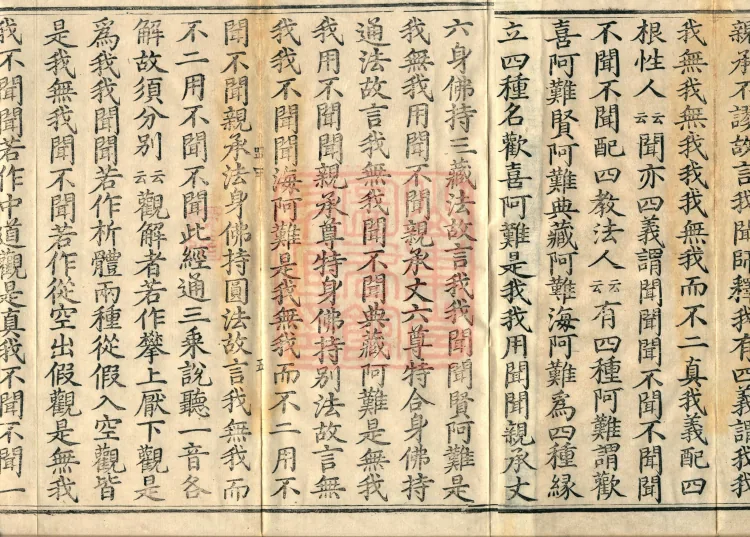 親承不謬故言我聞師釋我有四義謂我我
我無我我我無我而不二真我義配四
根性人云云聞亦四義謂聞聞聞不聞不聞聞
不聞不聞配四教法人云云有四種阿難謂歡
喜阿難賢阿難典藏阿難海阿難為四種緣
立四種名歡喜阿難是我我用聞聞親承丈
六身佛持三藏法故言我我聞聞賢阿難是
我無我用聞不聞親承丈六尊特合身佛持
通法故言我無我聞不聞典藏阿難是無我
我用不聞聞親承尊特身佛持别法故言無
我我不聞聞海阿難是我無我而不二用不
聞不聞親承法身佛持圓法故言我無我而
不二用不聞不聞此經通三乘說聽一音各
解故須分别云云觀解者若作攀上厭下觀是
爲我我聞聞若作析體兩種從假入空觀皆
是我無我聞不聞若作從空出假觀是無我
我不聞聞若作中道觀是真我不聞不聞一